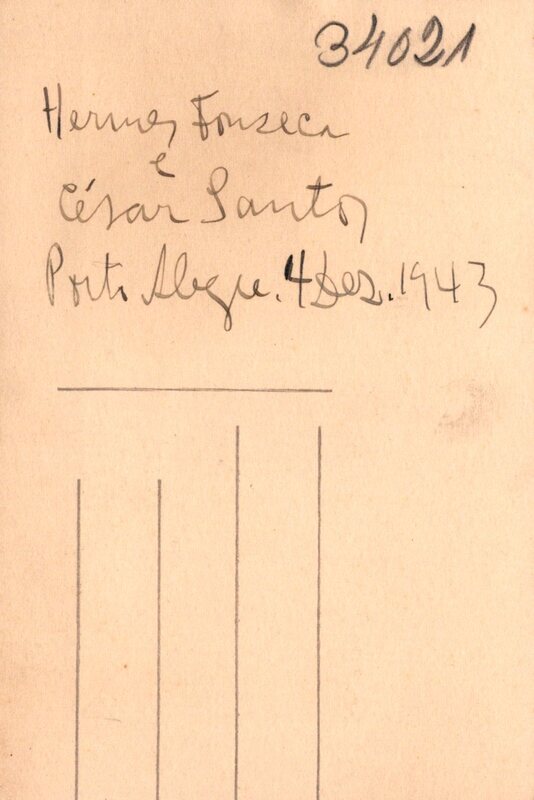 34021
Hermes Fonseca
e
César Santos
Porto Alegre. 4 Dez. 1943